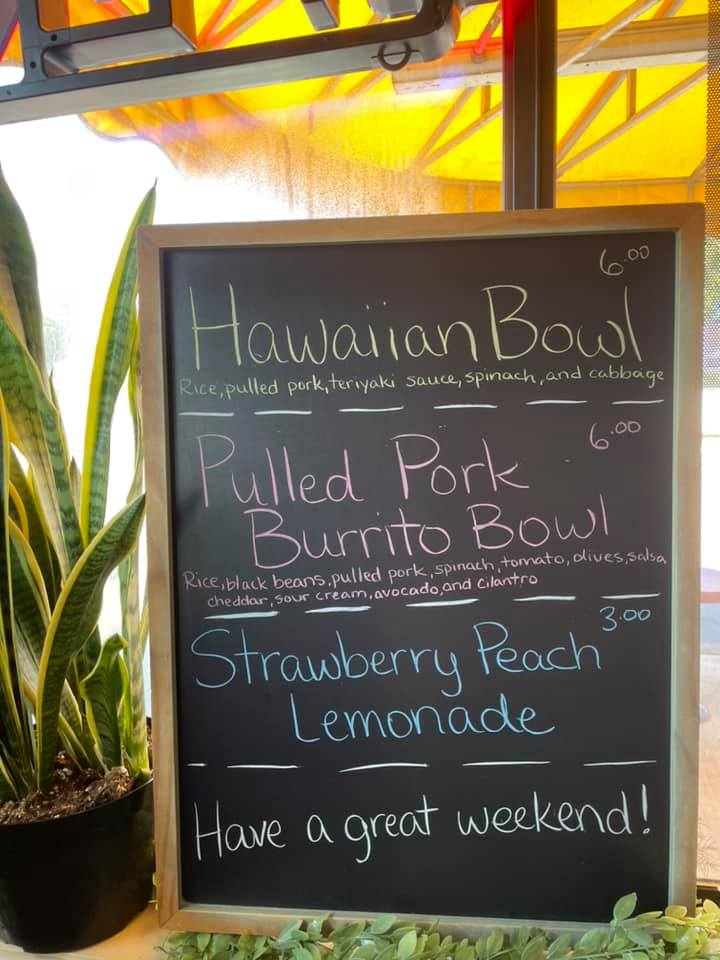 6.00
Hawaiian Bowl
Rice, pulled pork, teriyaki sauce, spinach, and cabbage
6.00
Pulled Pork
Burrito Bowl
Rice, black beans, pulled pork, spinach, tomato, olives, salsa,
cheddar, sour cream, avocado, and cilantro
3.00
Strawberry Peach
Lemonade
Have a great weekend!